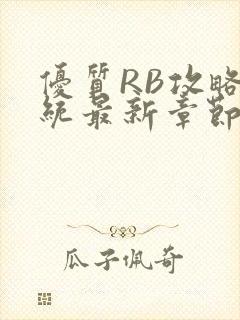 優質RB攻略
統最新章節
瓜子佩奇